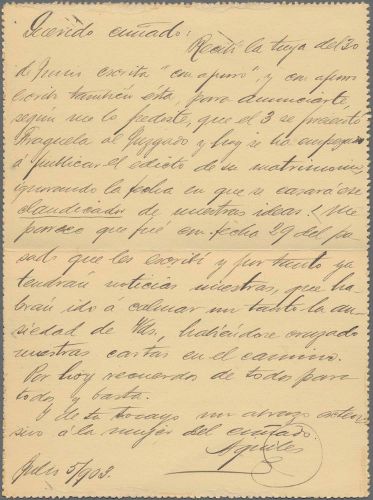 Querido cuñado:
Recibí la tuya del 30
de Junio escrita "con apuro", y con apuro
escribo también ésta, para anunciarte,
según me lo pediste, que el 3 se presentó
Fraguela al Juzgado y hoy se ha empezado
á publicar el edicto de su matrimonio,
ignorando la fecha en que se casará ese
claudicador de nuestras ideas. Me
parece que fué con fecha 29 del pa
sado que les escribí y por tanto ya
tendrán noticias nuestras, que ha
brán ido á calmar un tanto la an
siedad de Uds, habiéndose cruzado
nuestras cartas en el camino.
Por hoy recuerdos de todos para
todos y basta.
De tu tocayo un abrazo exten
sivo á la mujer del cuñado.
Aquiles
Julio 5/903.